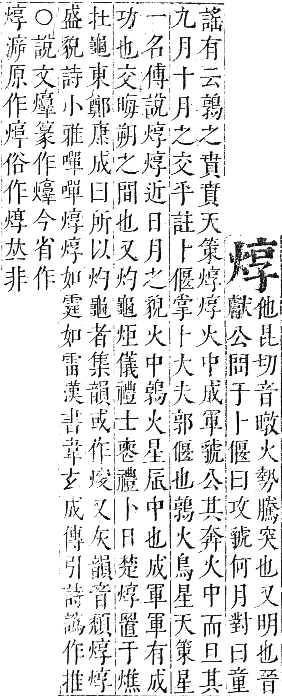 焞
他昆切音暾火勢騰突也又明也晉
獻公問于卜偃曰攻虢何月對曰童
謠有云鶉之賁賁天策焞焞火中成軍虢公其奔火中而旦其
九月十月之交乎註卜偃掌卜大夫郭偃也鶉火鳥星天策星
一名傅說焞焞近日月之貌火中鶉火星辰中也成軍軍有成
功也交晦朔之間也又灼龜炬儀禮士喪禮卜日楚焞置于燋
在龜東鄭康成曰所以灼龜者集韻或作焌又灰韻音頹焞焞
盛貌詩小雅嘽嘽焞焞如霆如雷漢書韋玄成傳引詩譌作推
○說文篆作今省作
焞原作焞俗作𠀤非